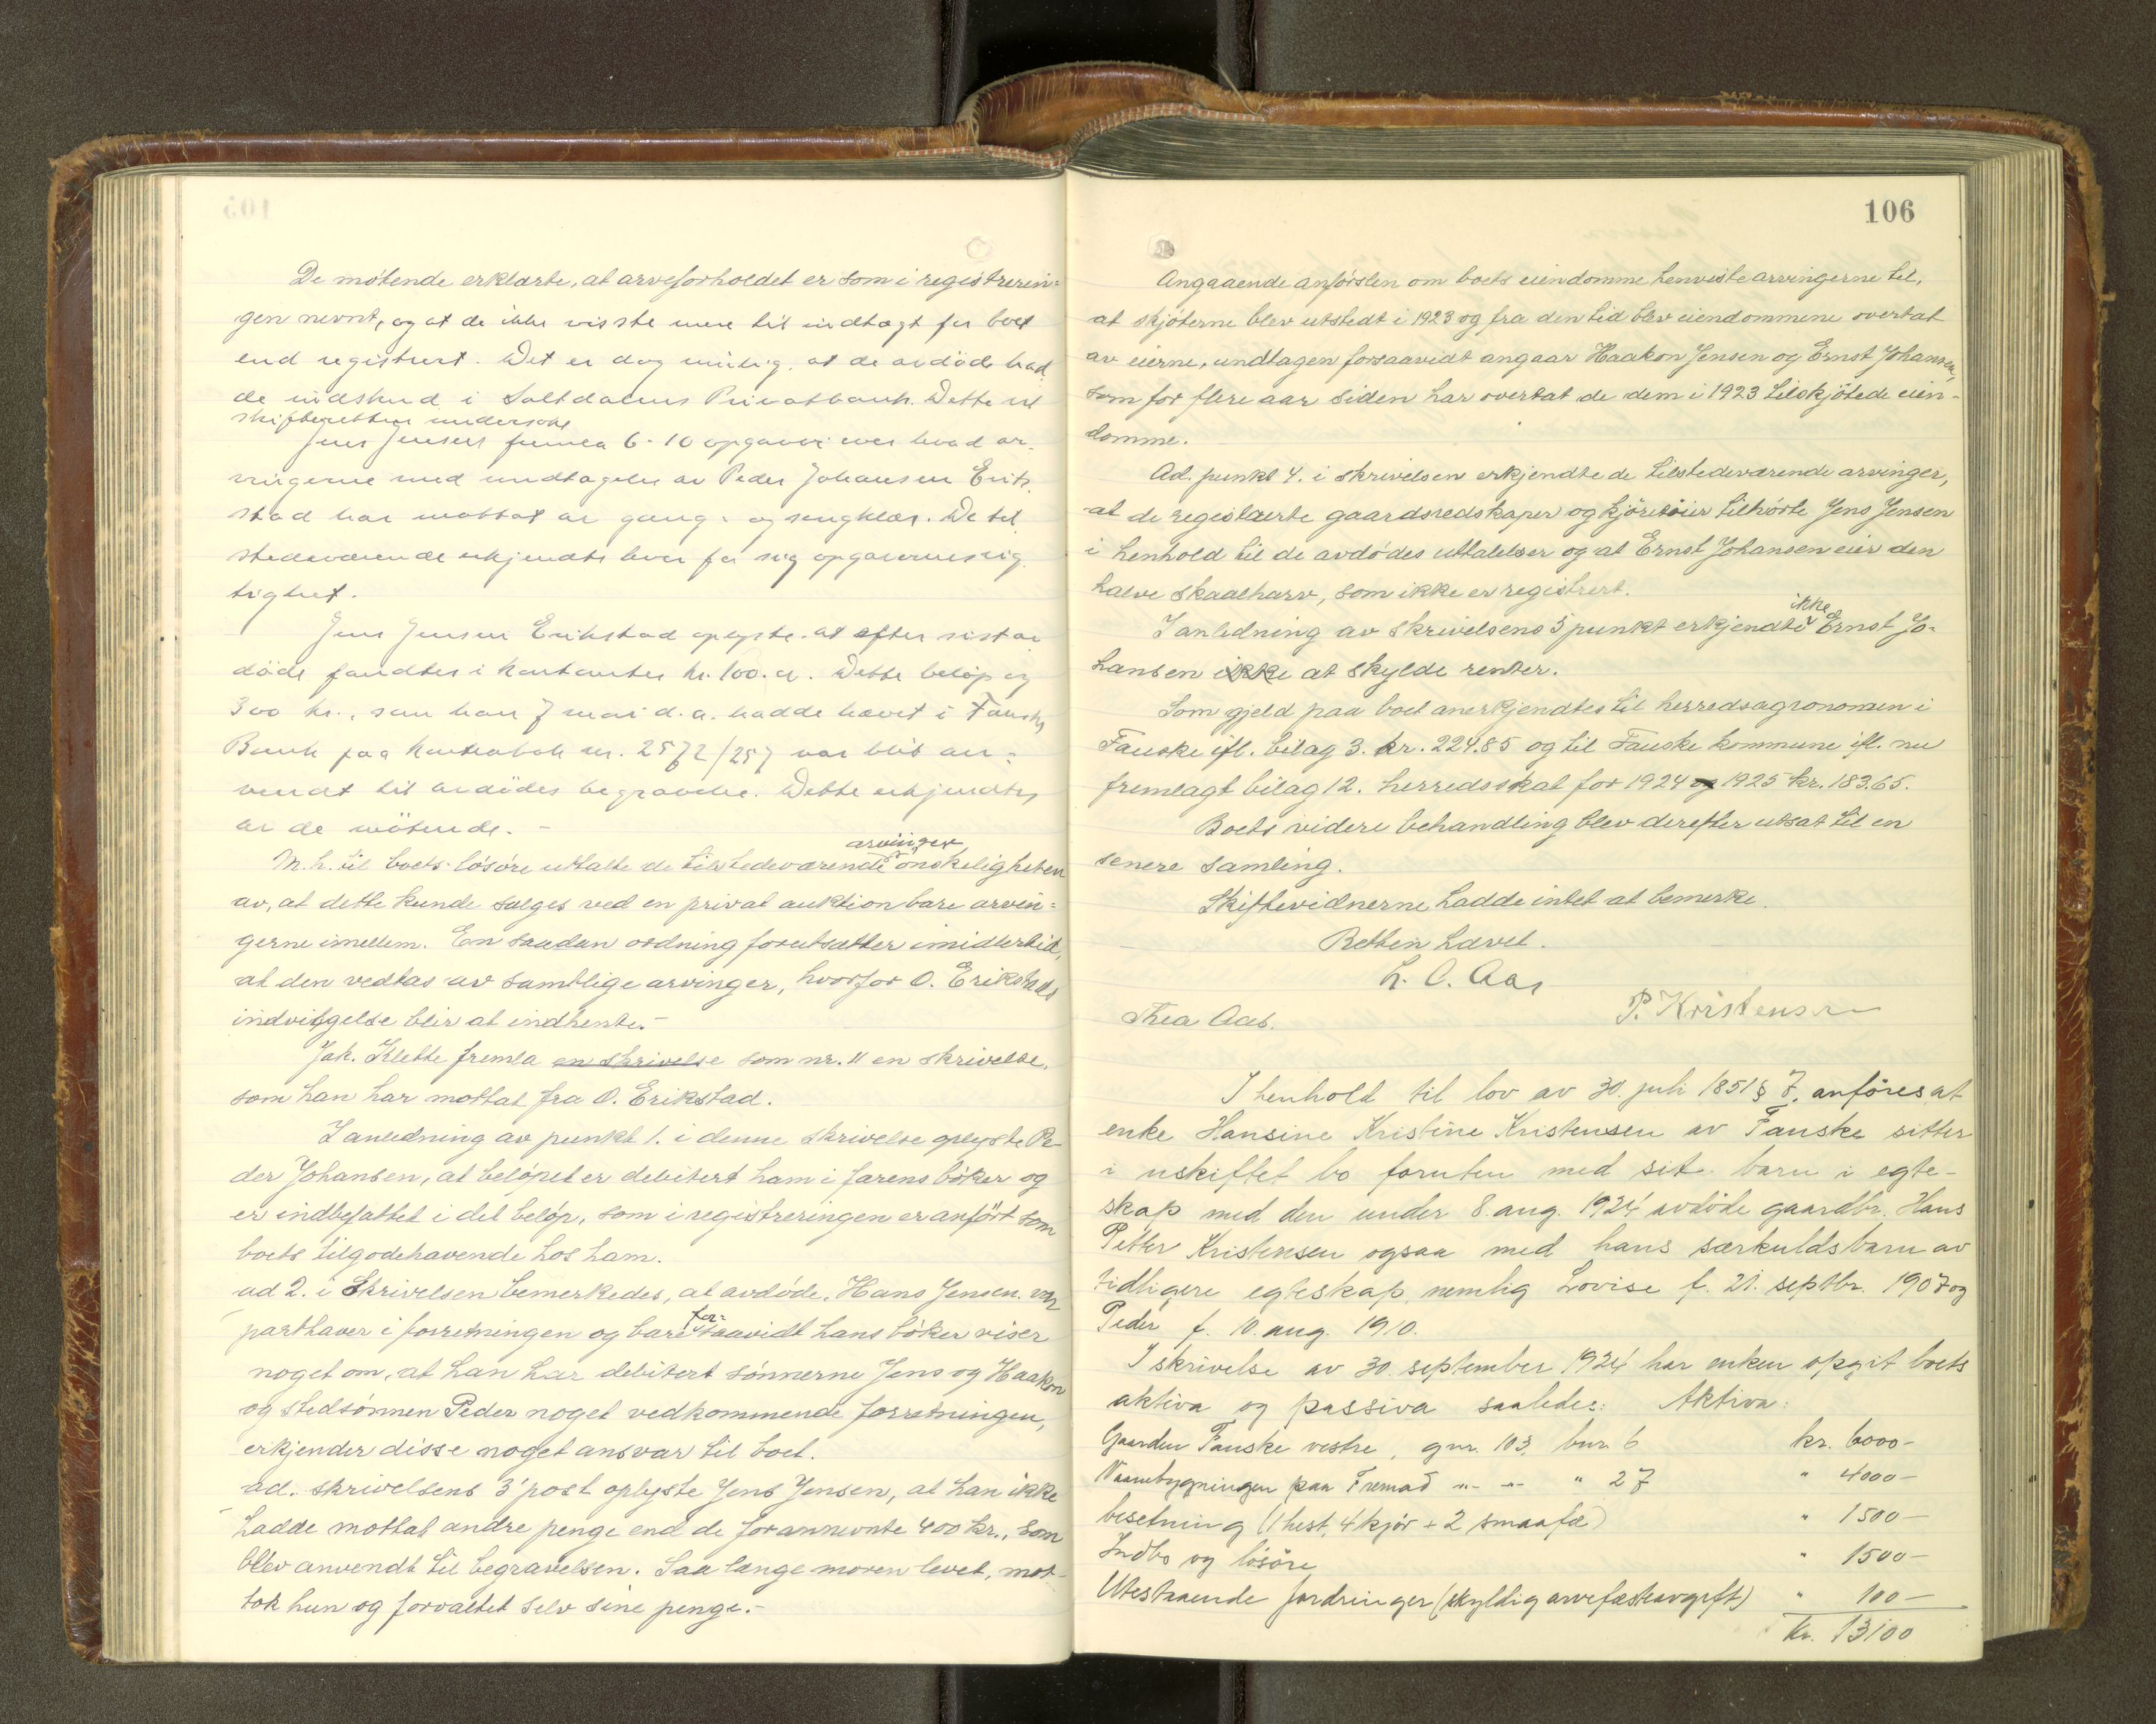 De møtende erklærte, at arveforholdet er som i registrerin-
gen nevnt, og at de ikke visste mere til indtægt for boet
end registrert. Det er dog mulig, at de avdøde had
de indskud i Saltdalens Privatbank. Dette vil
skifteretten undersøke
Jens Jensen fremla 6-10 opgaver over hvad ar-
vingerne med undtagelse av Peder Johansen Erik-
stad har mottat av gang- og sengklær. De til
stedeværende erkjendte hver for sig opgavernes rig
tighet.
Jens Jensen Erikstad oplyste at efter sist av
døde fandtes i kontanter kr. 100. Dette beløp og
300 kr., som han 7 mai d.a. hadde hævet i Fauske
Bank paa kontrabok nr. 2572/257 var blit an-
vendt til avdødes begravelse. Dette erkjendtes
av de møtende. -
arvinger
M.h. til boets løsøre uttalte de tilstedeværende ønskeligheten
av, at dette kunde sælges ved en privat auktion bare arvin-
gerne imellem. En saadan ordning forutsætter imidlertid,
at den vedtas av samtlige arvinger, hvorfor O. Erikstads
indvilgelse blir at indhente.-
Jak. Klette fremla en skrivelse som nr. 11 en skrivelse,
som han har mottat fra O. Erikstad.
I anledning av punkt 1. i denne skrivelse oplyste Pe-
der Johansen, at beløpet er debitert ham i farens bøker og
er indbefattet i det beløp, som i registreringen er anført som
boets tilgodehavende hos ham.
ad 2. i Skrivelsen bemerkedes, at avdøde, Hans Jensen var
parthaver i forretningen og bare forsaavidt hans bøker viser
noget om, at han har debitert sønnerne Jens og Haakon
og stedsønnen Peder noget vedkommende forretningen,
erkjender disse noget ansvar til boet.
ad. skrivelsens 3' post oplyste Jens Jensen, at han ikke
hadde mottat andre penge end de forannevnte 400 kr., som
blev anvendt til begravelsen. Saa længe moren levet, mot-
tok hun og forvaltet selv sine penge.-
106
Angaaende anførslen om boets eiendomme henviste arvingerne til,
at skjøterne blev utstedt i 1923 og fra den tid blev eiendommene overtat
av eierne, undtagen forsaavidt angaar Haakon Jensen og Ernst Johansen,
som for flere aar siden har overtat de dem i 1923 tilskjøtede eien-
domme.
Ad. punkt 4. i skrivelsen erkjendte de tilstedeværende arvinger,
at de registrerte gaardsredskaper og kjøretøier tilhørte Jens Jensen
i henhold til de avdødes uttalelser og at Ernst Johansen eier den
halve skaalharv, som ikke er registrert.
ikke
I anledning av skrivelsens 5 punkt erkjendte Ernst Jo-
hansen ikke at skylde renter.
Som gjeld paa boet anerkjendtes til herredsagronomen i
Fauske ifl. bilag 3. kr. 224.85 og til Fauske kommune ifl. nu
fremlagt bilag 12. herredsskat for 1924 og 1925 kr. 183.65.
Boets videre behandling blev derefter utsat til en
senere samling.
Skiftevidnerne hadde intet at bemerke.
Retten hævet.
L. O. Aas
Thea Aas. P. Kristensen
I henhold til lov av 30. juli 1851 § 7. anføres at
enke Hansine Kristine Kristensen av Fauske sitter
i uskiftet bo foruten med sit barn i egte-
skap med den under 8. aug. 1924 avdøde gaardbr. Hans
Petter Kristensen ogsaa med hans særkuldsbarn av
tidligere egteskap, nemlig Lovise f. 21. septbr. 1907 og
Peder f. 10. aug. 1910.
I skrivelse av 30. september 1924 har enken opgit boets
aktiva og passiva saaledes: Aktiva:
Gaarden Fauske vestre, gnr. 103. bnr. 6 kr. 6000-
Vaanebygningen paa Fremad " - " - " 27 " 4000-
besetning (1 hest, 4 kjør + 2 smaafæ) " 1500-
Indbo og løsøre " 1500-
Utestaaende fordringer (skyldig arvefæsteavgift) " 100-
kr. 13100